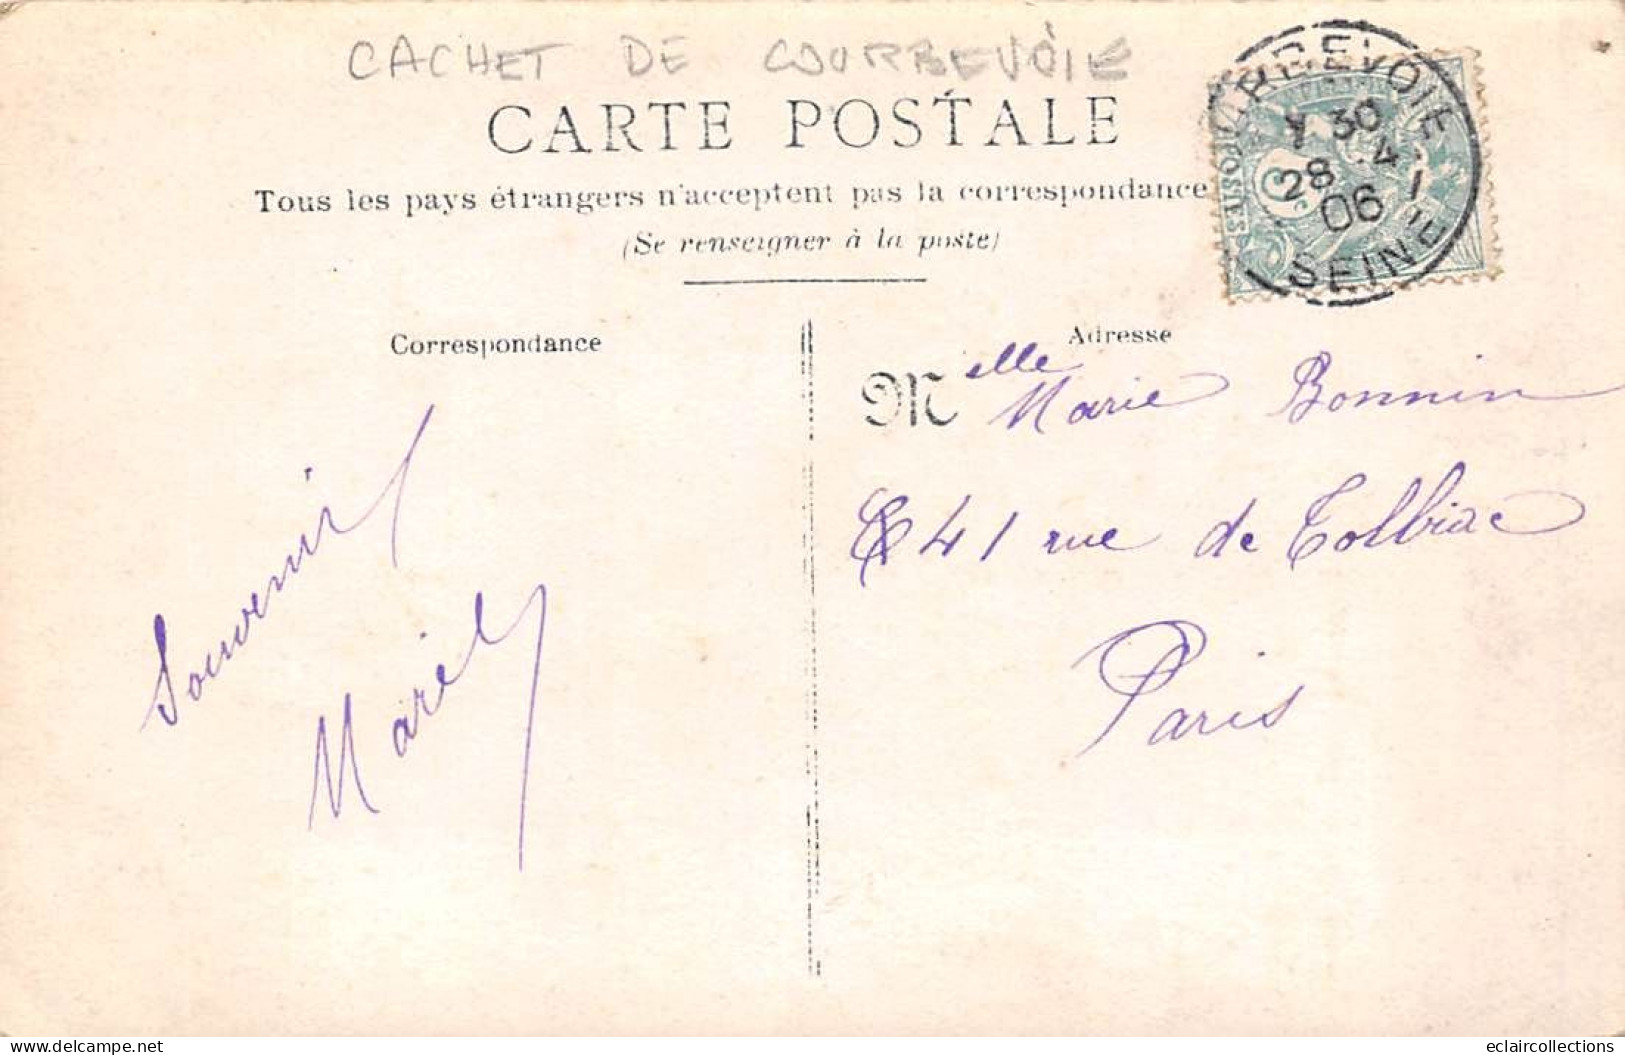 CACHET DE COURBEVOIE
CARTE POSTALE
Tous les pays étrangers n'acceptent pas la correspondance
(Se renseigner à la poste)
RBEVOIE
30
28 4
06
SEINE
Correspondance
Adresse
Souvenir
M elle Marie Bonnin
41 rue de Tolbiac
Paris
eclaircollections